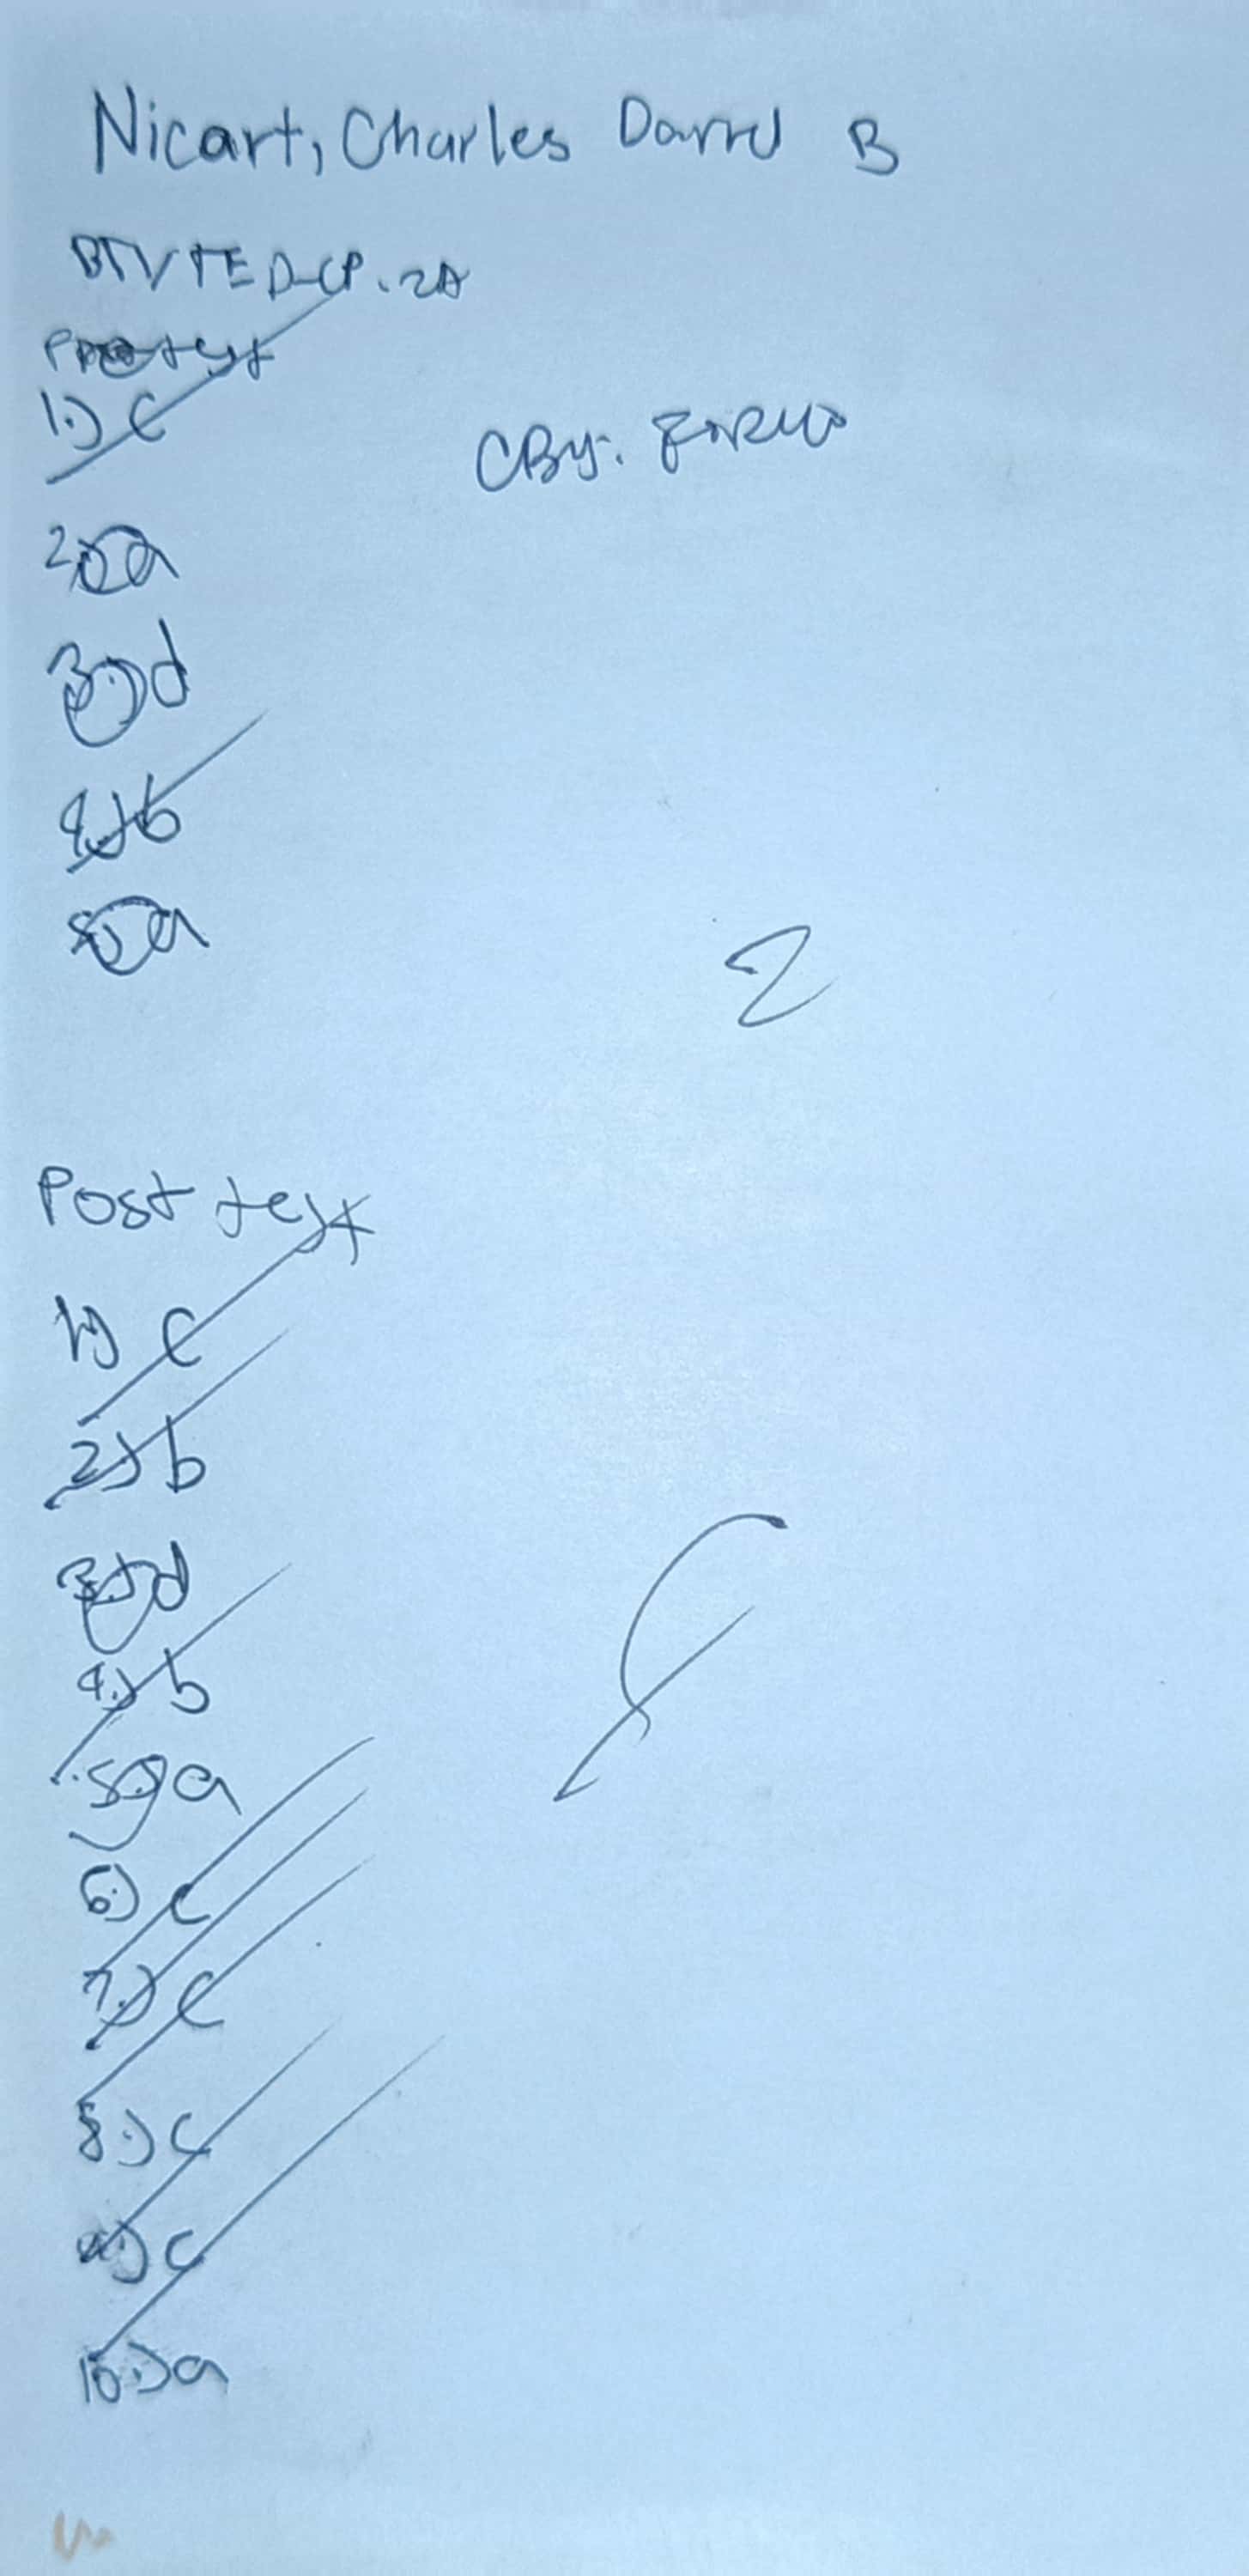 Nicart, Charles Darrel B
BTVTED-CP. 2A
Pretest
1.) C
CBy:
2.) a
3.) d
4.) b
5.) a
2
Post test
1.) C
2.) b
3.) d
4.) b
5.) a
6.) C
7.) C
8.) C
9.) C
10.) a